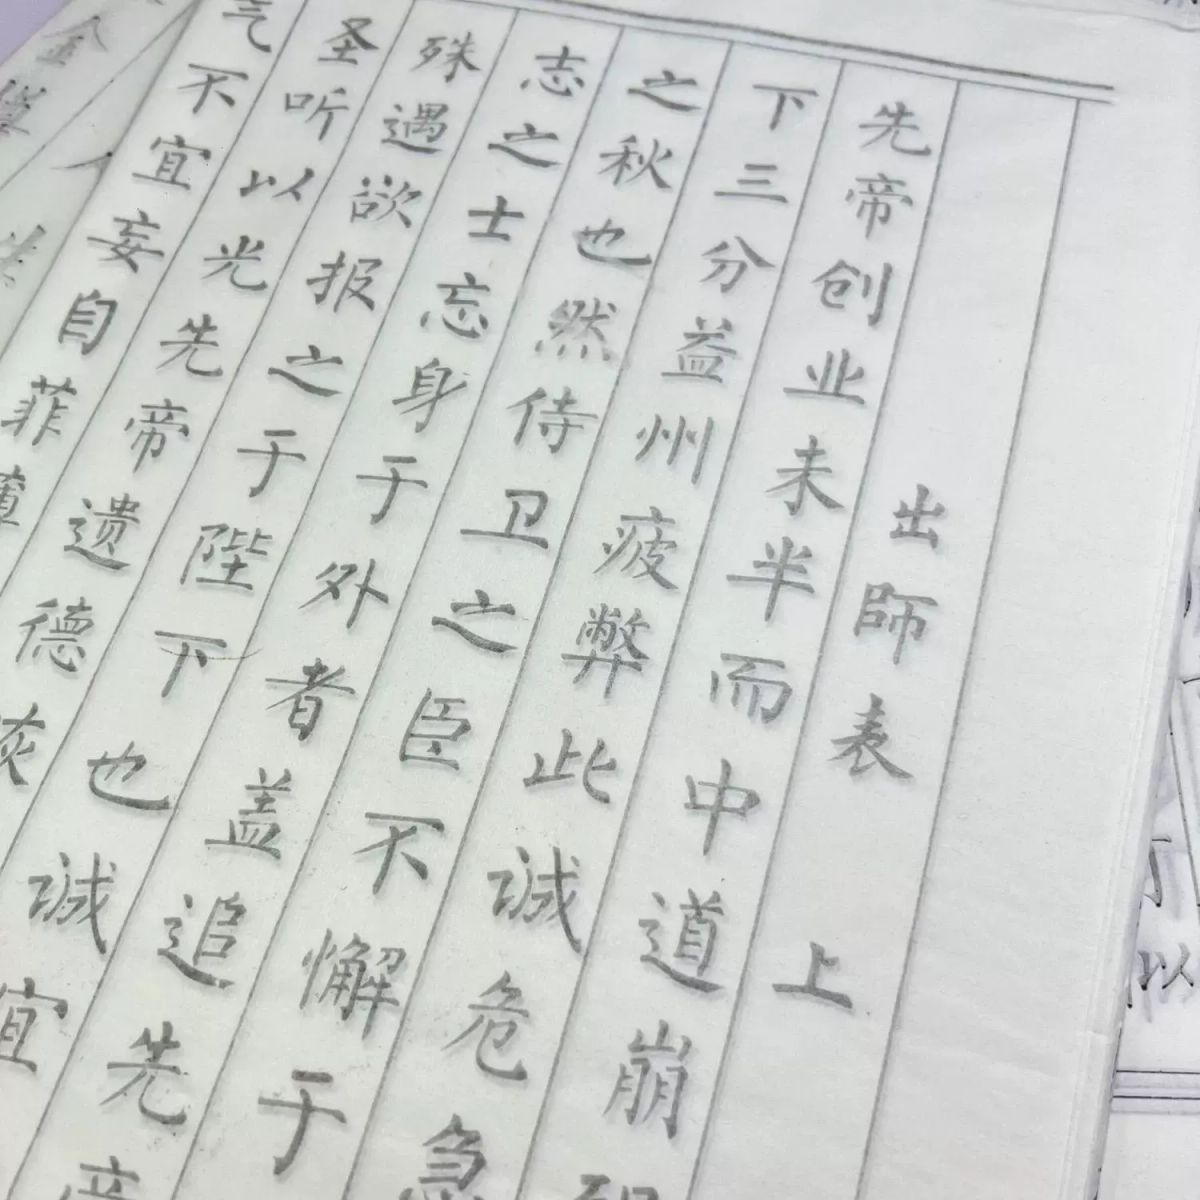 出師表 上
先帝创业未半而中道崩
下三分益州疲弊此诚危急
之秋也然侍卫之臣不懈于
志之士忘身于外者盖追先帝
殊遇欲报之于陛下也诚宜
圣听以光先帝遗德恢
气不宜妄自菲薄
以